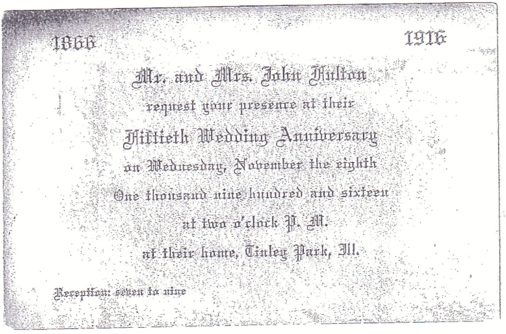 1866
1916
Mr. and Mrs. John Fulton
request your presence at their
Fiftieth Wedding Anniversary
on Wednesday, November the eighth
One thousand nine hundred and sixteen
at two o'clock P. M.
at their home, Tinley Park, Ill.
Reception: seven to nine